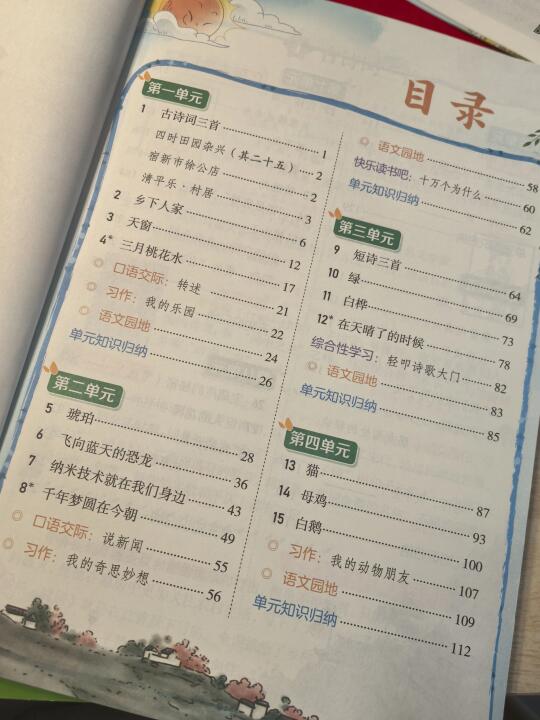 目录
第一单元
1 古诗词三首 1
四时田园杂兴（其二十五） 2
宿新市徐公店 2
清平乐·村居 3
2 乡下人家 6
3 天窗 12
4* 三月桃花水 17
口语交际：转述 21
习作：我的乐园 22
语文园地 24
单元知识归纳 26
第二单元
5 琥珀 28
6 飞向蓝天的恐龙 36
7 纳米技术就在我们身边 43
8* 千年梦圆在今朝 49
口语交际：说新闻 55
习作：我的奇思妙想 56
语文园地 58
快乐读书吧：十万个为什么 60
单元知识归纳 62
第三单元
9 短诗三首 64
10 绿 69
11 白桦 73
12* 在天晴了的时候 78
综合性学习：轻叩诗歌大门 82
语文园地 83
单元知识归纳 85
第四单元
13 猫 87
14 母鸡 93
15 白鹅 100
习作：我的动物朋友 107
语文园地 109
单元知识归纳 112